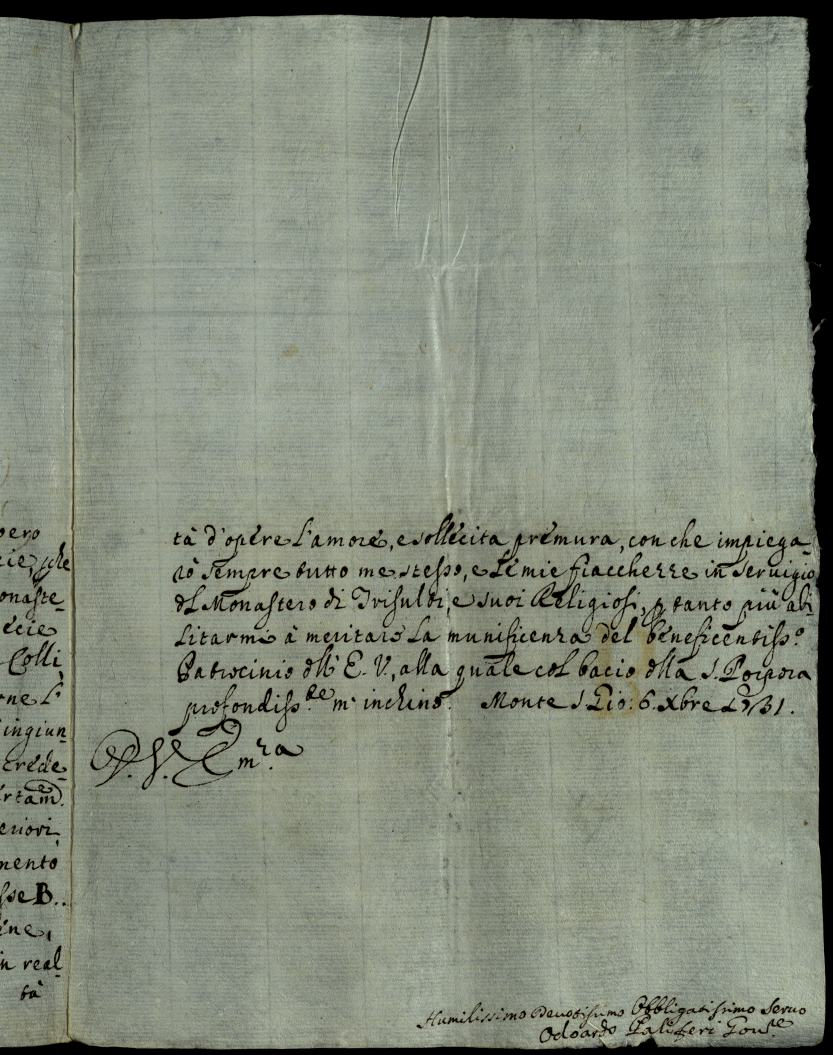 pero
cie, che
onaste-
ecie
Colli
ne l'
ingiun
crede-
rtam.
eriori
mento
sse B..
ene,
in real
tà
tà d'opere l'amore, e sollecita premura, con che impiega-
rò sempre tutto me stesso, e le mie fiacchezze in servigio
del Monastero di Trisulti, e suoi Religiosi, p tanto più abi-
litarmi à meritare la munificenza del beneficentiss.o
Patrocinio dell' E. V., alla quale col bacio della S. Porpora
profondiss.te m' inchino. Monte S. Gio: 6. Xbre 1731.
D. V. E. m.ra
Humilissimo Devotissimo Obbligatissimo Servo
Odoardo